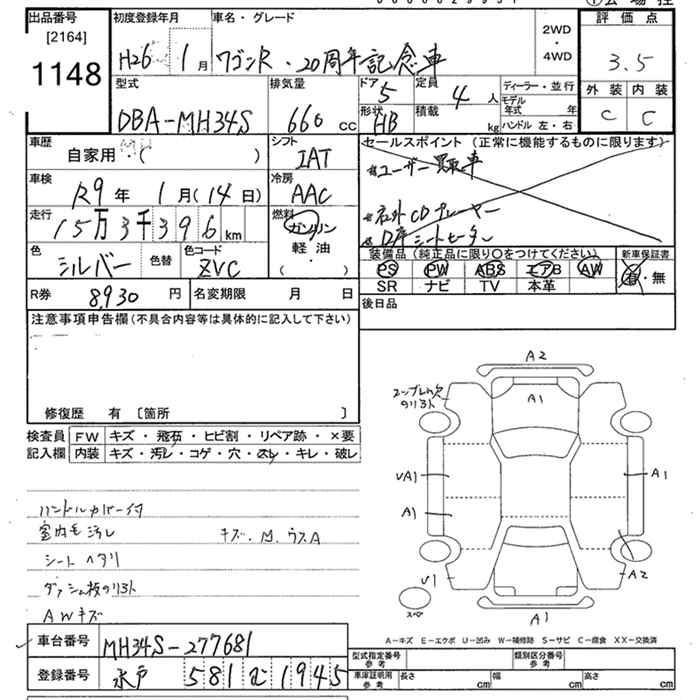 出品番号 初度登録年月 車名・グレード 評価点
[2164] 2WD
1148 H26 1月 ワゴンR・20周年記念車 ・ 3.5
4WD
型式 排気量 ドア 定員 ディーラー・並行 外装 内装
5 4人 モデル年式 年
DBA-MH34S 660cc 形状 積載 C C
HB kg ハンドル 左・右
車歴 シフト セールスポイント (正常に機能するものに限ります)
自家用・( ) IAT ユーザー買取車
車検 冷房
R9年 1月(14日) AAC 社外CDプレーヤー
走行 燃料
15万3千396km ガソリン D席シートヒーター
色 色替 色コード 軽・油 装備品(純正品に限り○をつけてください) 新車保証書
シルバー ZVC ・( ) PS PW ABS エアB AW 有・無
SR ナビ TV 本革
R券 8,930円 名変期限 月 日 後日品
注意事項申告欄(不具合内容等は具体的に記入して下さい)
修復歴 有 [箇所 ]
検査員 FW キズ・飛石・ヒビ割・リペア跡・×要
記入欄 内装 キズ・汚レ・コゲ・穴・スレ・キレ・破レ
ハンドルカバー付
室内毛汚レ キズ、M、ウスA
シートヘタリ
ダッシュ板のリヨト
AWキズ
A2
A1
UA1 A1
A1
U1 A2
A1
スペ
A-キズ E-エクボ U-凹み W-補修跡 S-サビ C-腐食 XX-交換済
車台番号 MH34S-277681 型式指定番号 参考 類別区分番号 参考
登録番号 水戸 581 む 1945 車庫証明用 参考 長さ cm 幅 cm 高さ cm